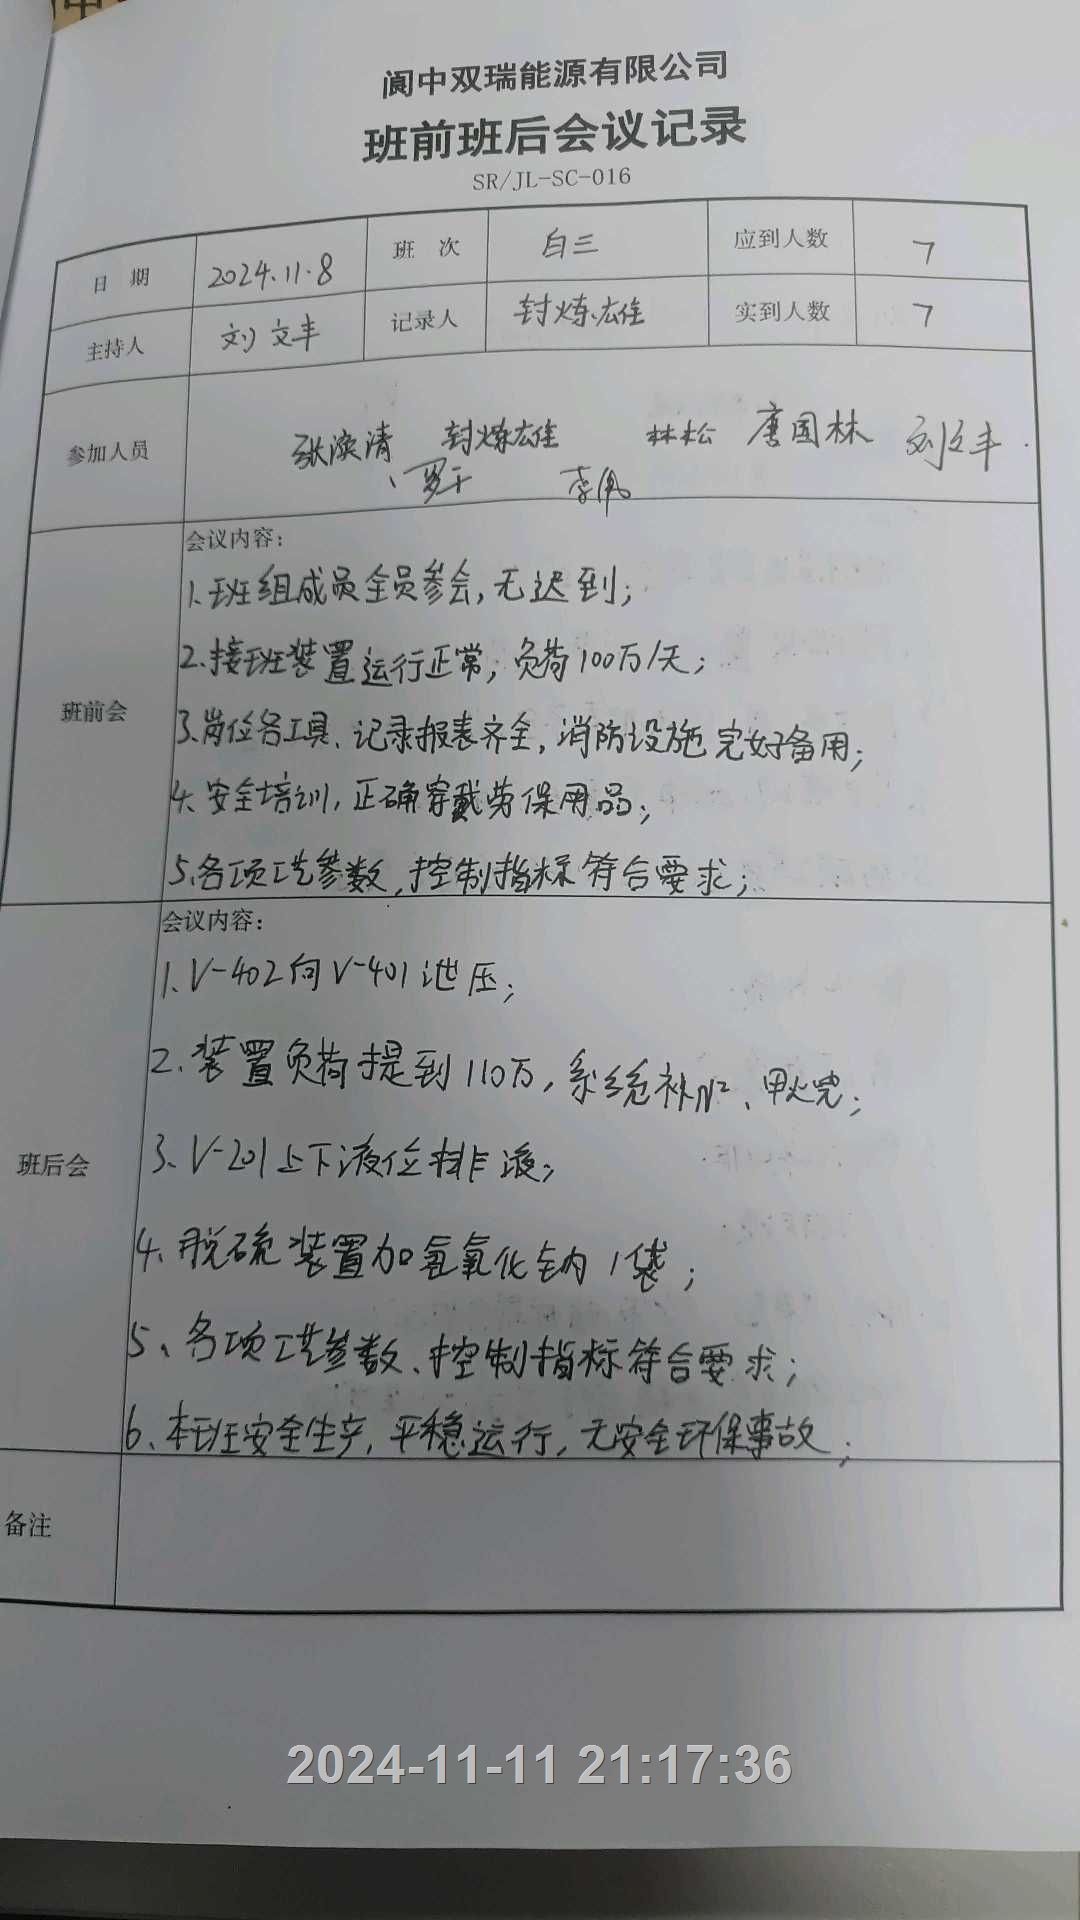 阆中双瑞能源有限公司
班前班后会议记录
SR/JL-SC-016
日 期 2024.11.8 班 次 白三 应到人数 7
主持人 刘文丰 记录人 封炼雄 实到人数 7
参加人员 张滨清 封炼雄 林松 唐国林 刘文丰
罗于 李佩
会议内容:
1.班组成员全员参会,无迟到;
2.接班装置运行正常,负荷100万/天;
班前会
3.岗位各工具、记录报表齐全,消防设施完好备用;
4.安全培训,正确穿戴劳保用品;
5.各项工艺参数,控制指标符合要求;
会议内容:
1.V-402向V-401泄压;
2.装置负荷提到110万,系统补N2、甲烷;
班后会
3、V-201上下液位排液;
4、脱硫装置加氢氧化钠1袋;
5、各项工艺参数、控制指标符合要求;
6、本班安全生产,平稳运行,无安全环保事故;
备注
2024-11-11 21:17:36